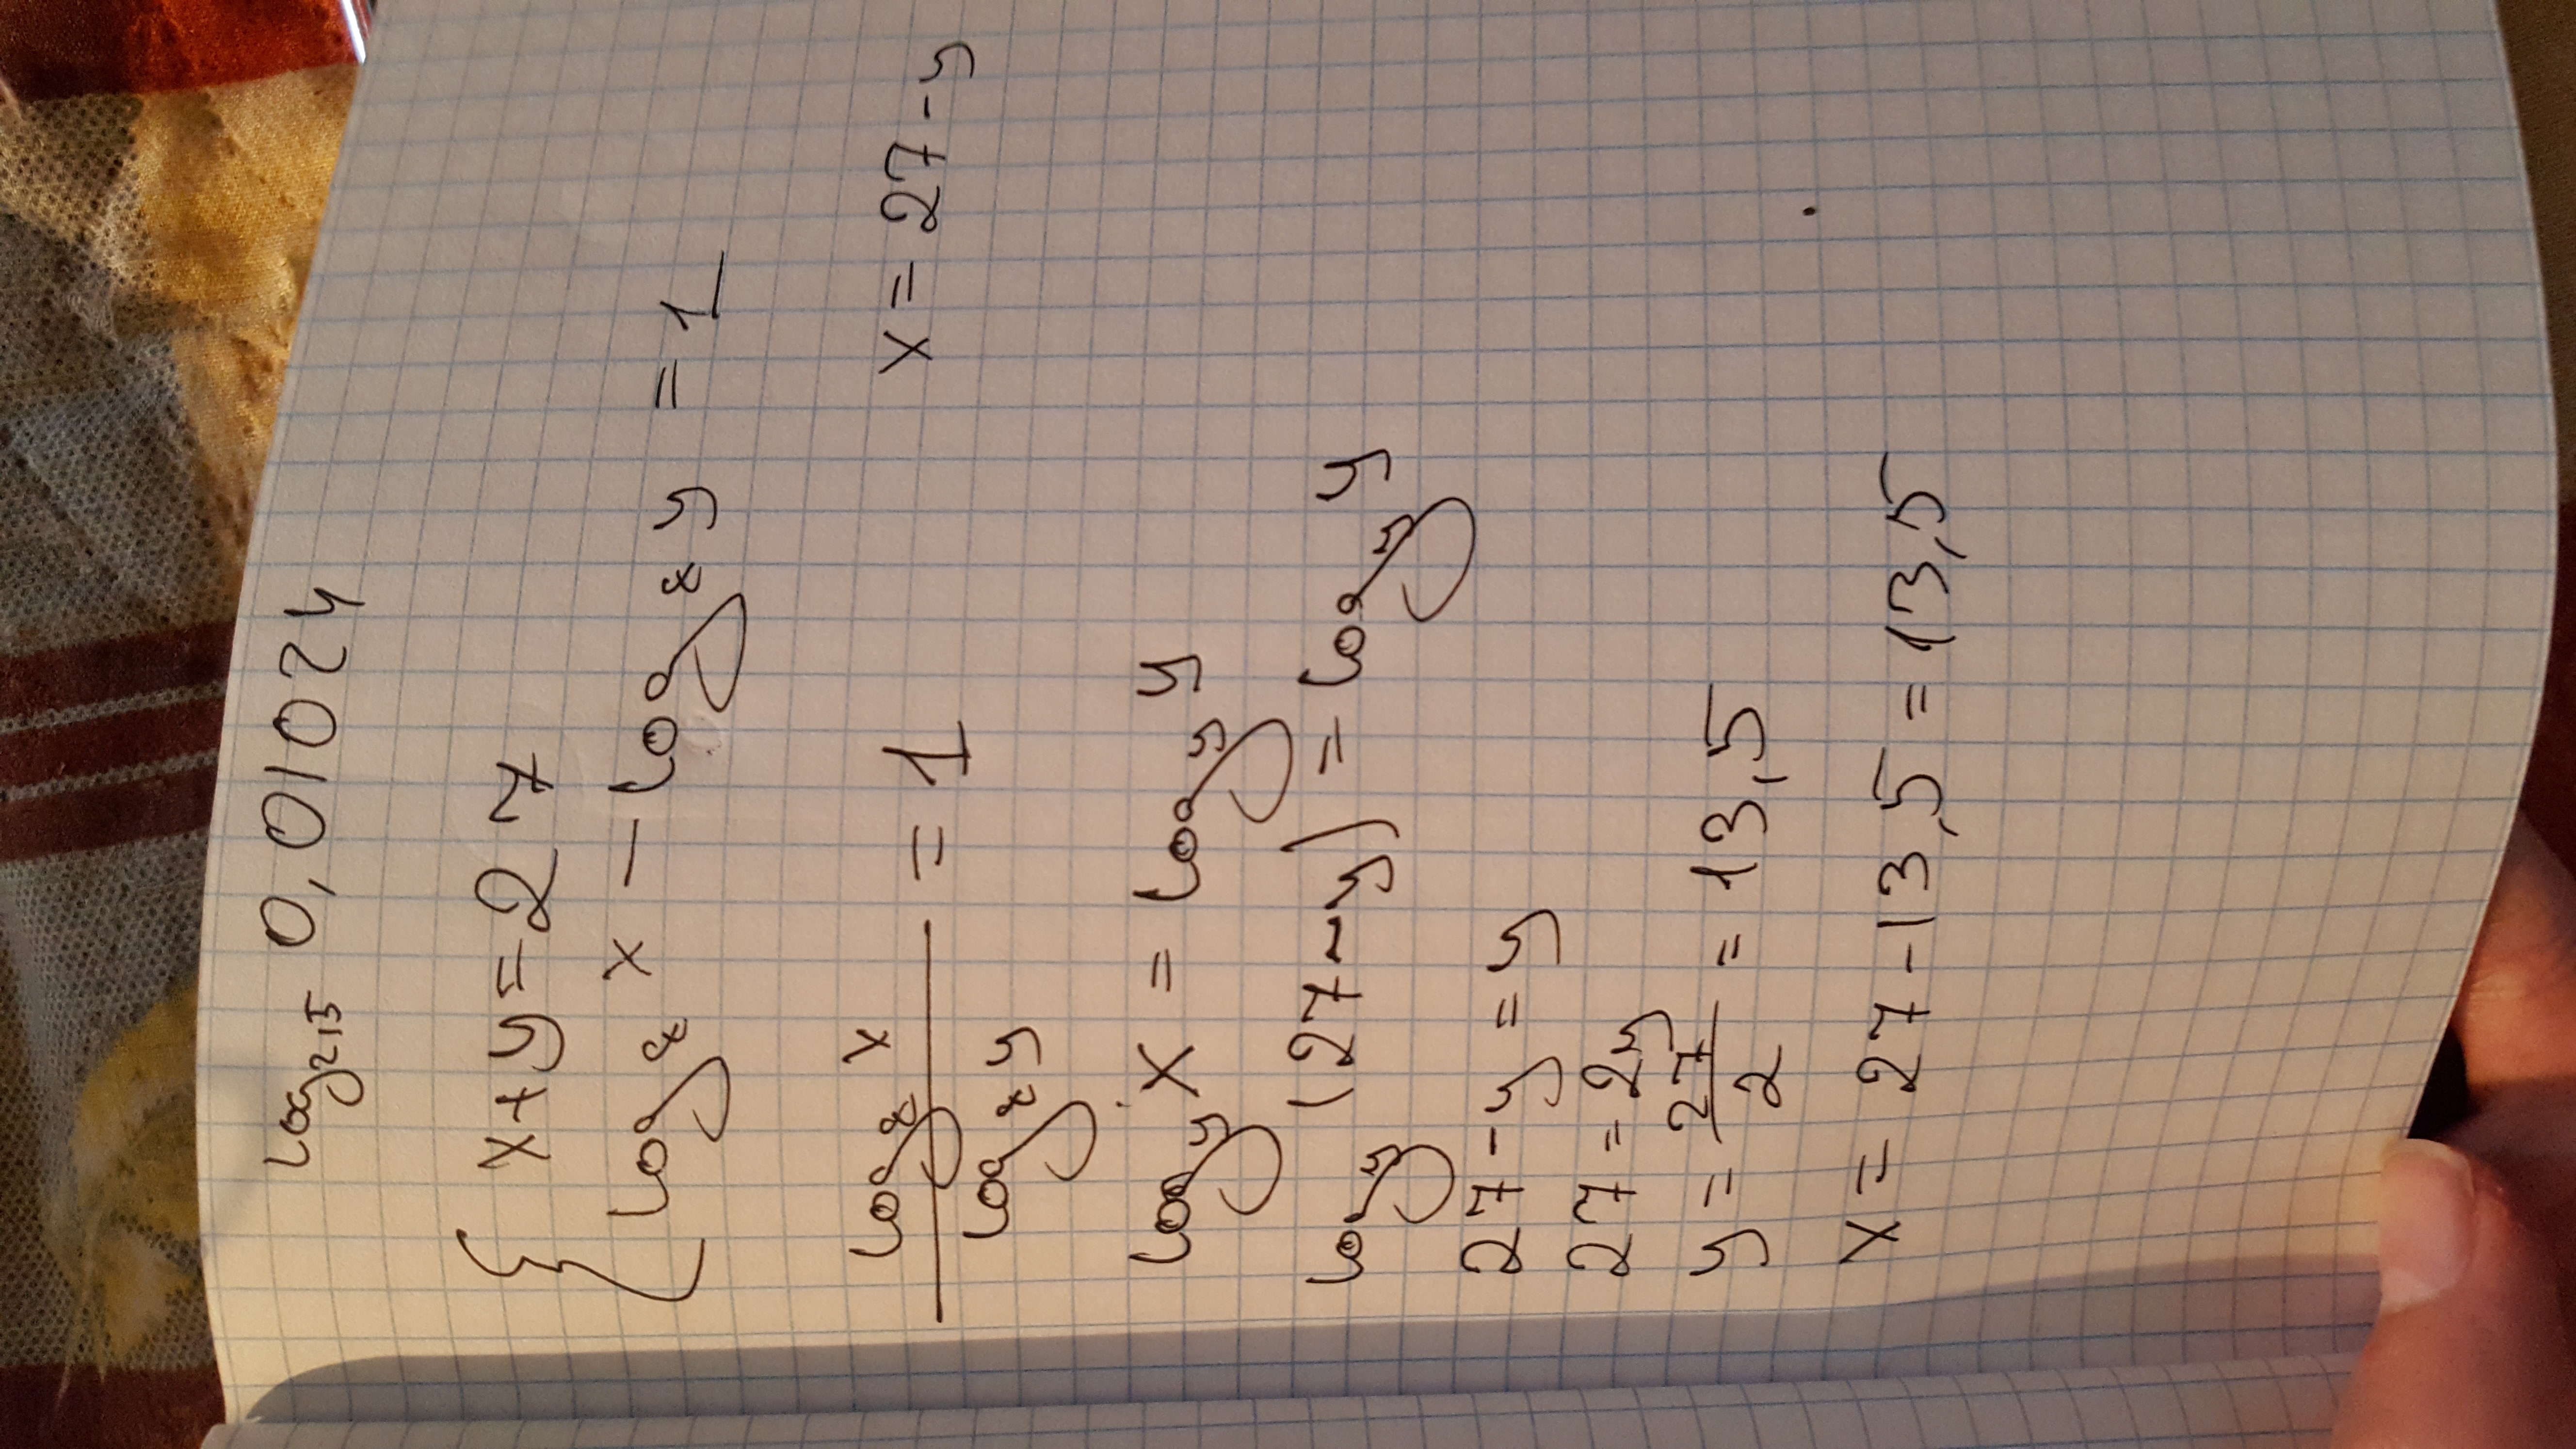 log₂,₅ 0,01024
{ x+y=27
log₈ x − log₈ y = 1
log₈ x / log₈ y = 1 x = 27-y
log_y x = log_y y
log_y (27-y) = log_y y
27-y = y
27 = 2y
y = 27/2 = 13,5
x = 27-13,5 = 13,5